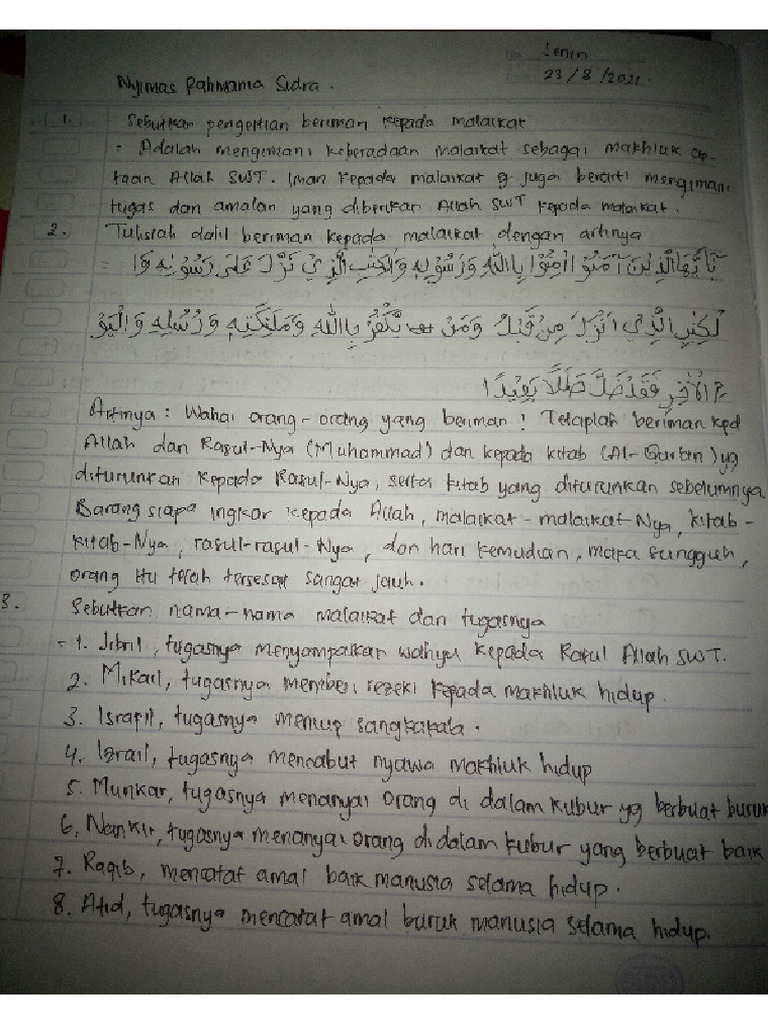 Senin
23/8/2021.
Nyimas Rahmania Sidra.
1. Sebutkan pengertian beriman kepada malaikat
- Adalah mengimani keberadaan malaikat sebagai makhluk cip-
taan Allah SWT. Iman kepada malaikat juga berarti mengimani
tugas dan amalan yang diberikan Allah SWT kepada malaikat.
2. Tulislah dalil beriman kepada malaikat dengan artinya
= يَا يُّهَا الَّذِيْنَ آمَنُوْا اٰمِنُوْا بِا اللّٰهِ وَرَسُوْلِهٖ وَالْكِتٰبِ الَّذِيْ نَزَّلَ عَلٰى رَسُوْلِهٖ وَا
لْكِتٰبِ الَّذِيْ اَنْزَلَ مِنْ قَبْلُ وَمَنْ يَّكْفُرْ بِا اللّٰهِ وَمَلٰٓئِكَتِهٖ وَرُسُلِهٖ وَالْيَوْ
مِ الْاٰخِرِ فَقَدْ ضَلَّ ضَلٰلًا بَعِيْدًا
Artinya : Wahai orang-orang yang beriman! Tetaplah beriman kpd
Allah dan Rasul-Nya (Muhammad) dan kepada kitab (Al-Qur'an) yg
diturunkan kepada Rasul-Nya, serta kitab yang diturunkan sebelumnya.
Barang siapa ingkar kepada Allah, malaikat-malaikat-Nya, kitab-
kitab-Nya, rasul-rasul-Nya, dan hari kemudian, maka sungguh,
orang itu telah tersesat sangat jauh.
3. Sebutkan nama-nama malaikat dan tugasnya
= 1. Jibril, tugasnya menyampaikan wahyu kepada Rasul Allah SWT.
2. Mikail, tugasnya memberi rezeki kepada makhluk hidup.
3. Israfil, tugasnya meniup sangkakala.
4. Izrail, tugasnya mencabut nyawa makhluk hidup
5. Munkar, tugasnya menanyai orang di dalam kubur yg berbuat buruk
6. Nankir, tugasnya menanyai orang di dalam kubur yang berbuat baik
7. Raqib, mencatat amal baik manusia selama hidup.
8. Atid, tugasnya mencatat amal buruk manusia selama hidup.